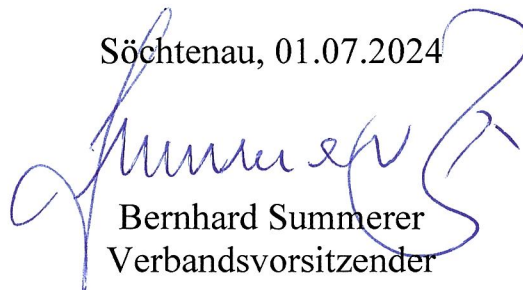 Söchtenau, 01.07.2024
Summerer
Bernhard Summerer
Verbandsvorsitzender